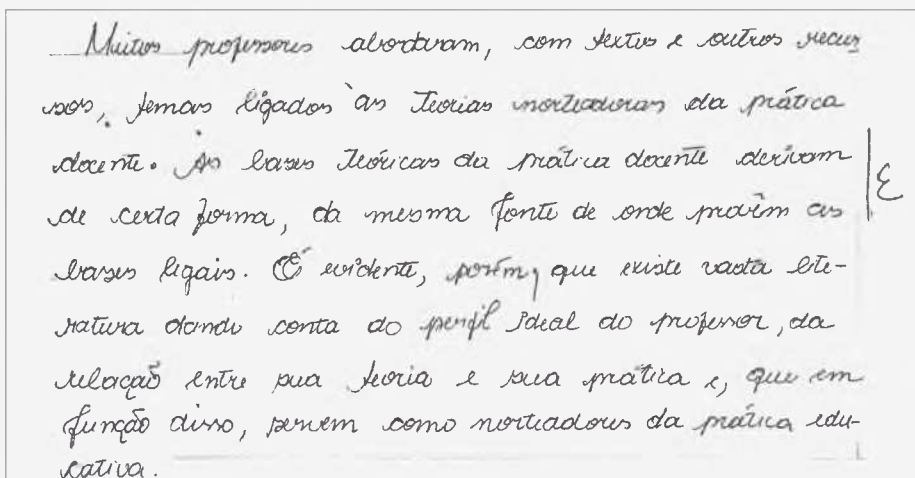 Muitos professores abordaram, com textos e outros recur
sos, temas ligados às teorias norteadoras da prática
docente. As bases teóricas da prática docente derivam
de certa forma, da mesma fonte de onde provêm as
bases legais. É evidente, porém, que existe vasta lite-
ratura dando conta do perfil ideal do professor, da
relação entre sua teoria e sua prática e, que em
função disso, servem como norteadores da prática edu-
cativa.